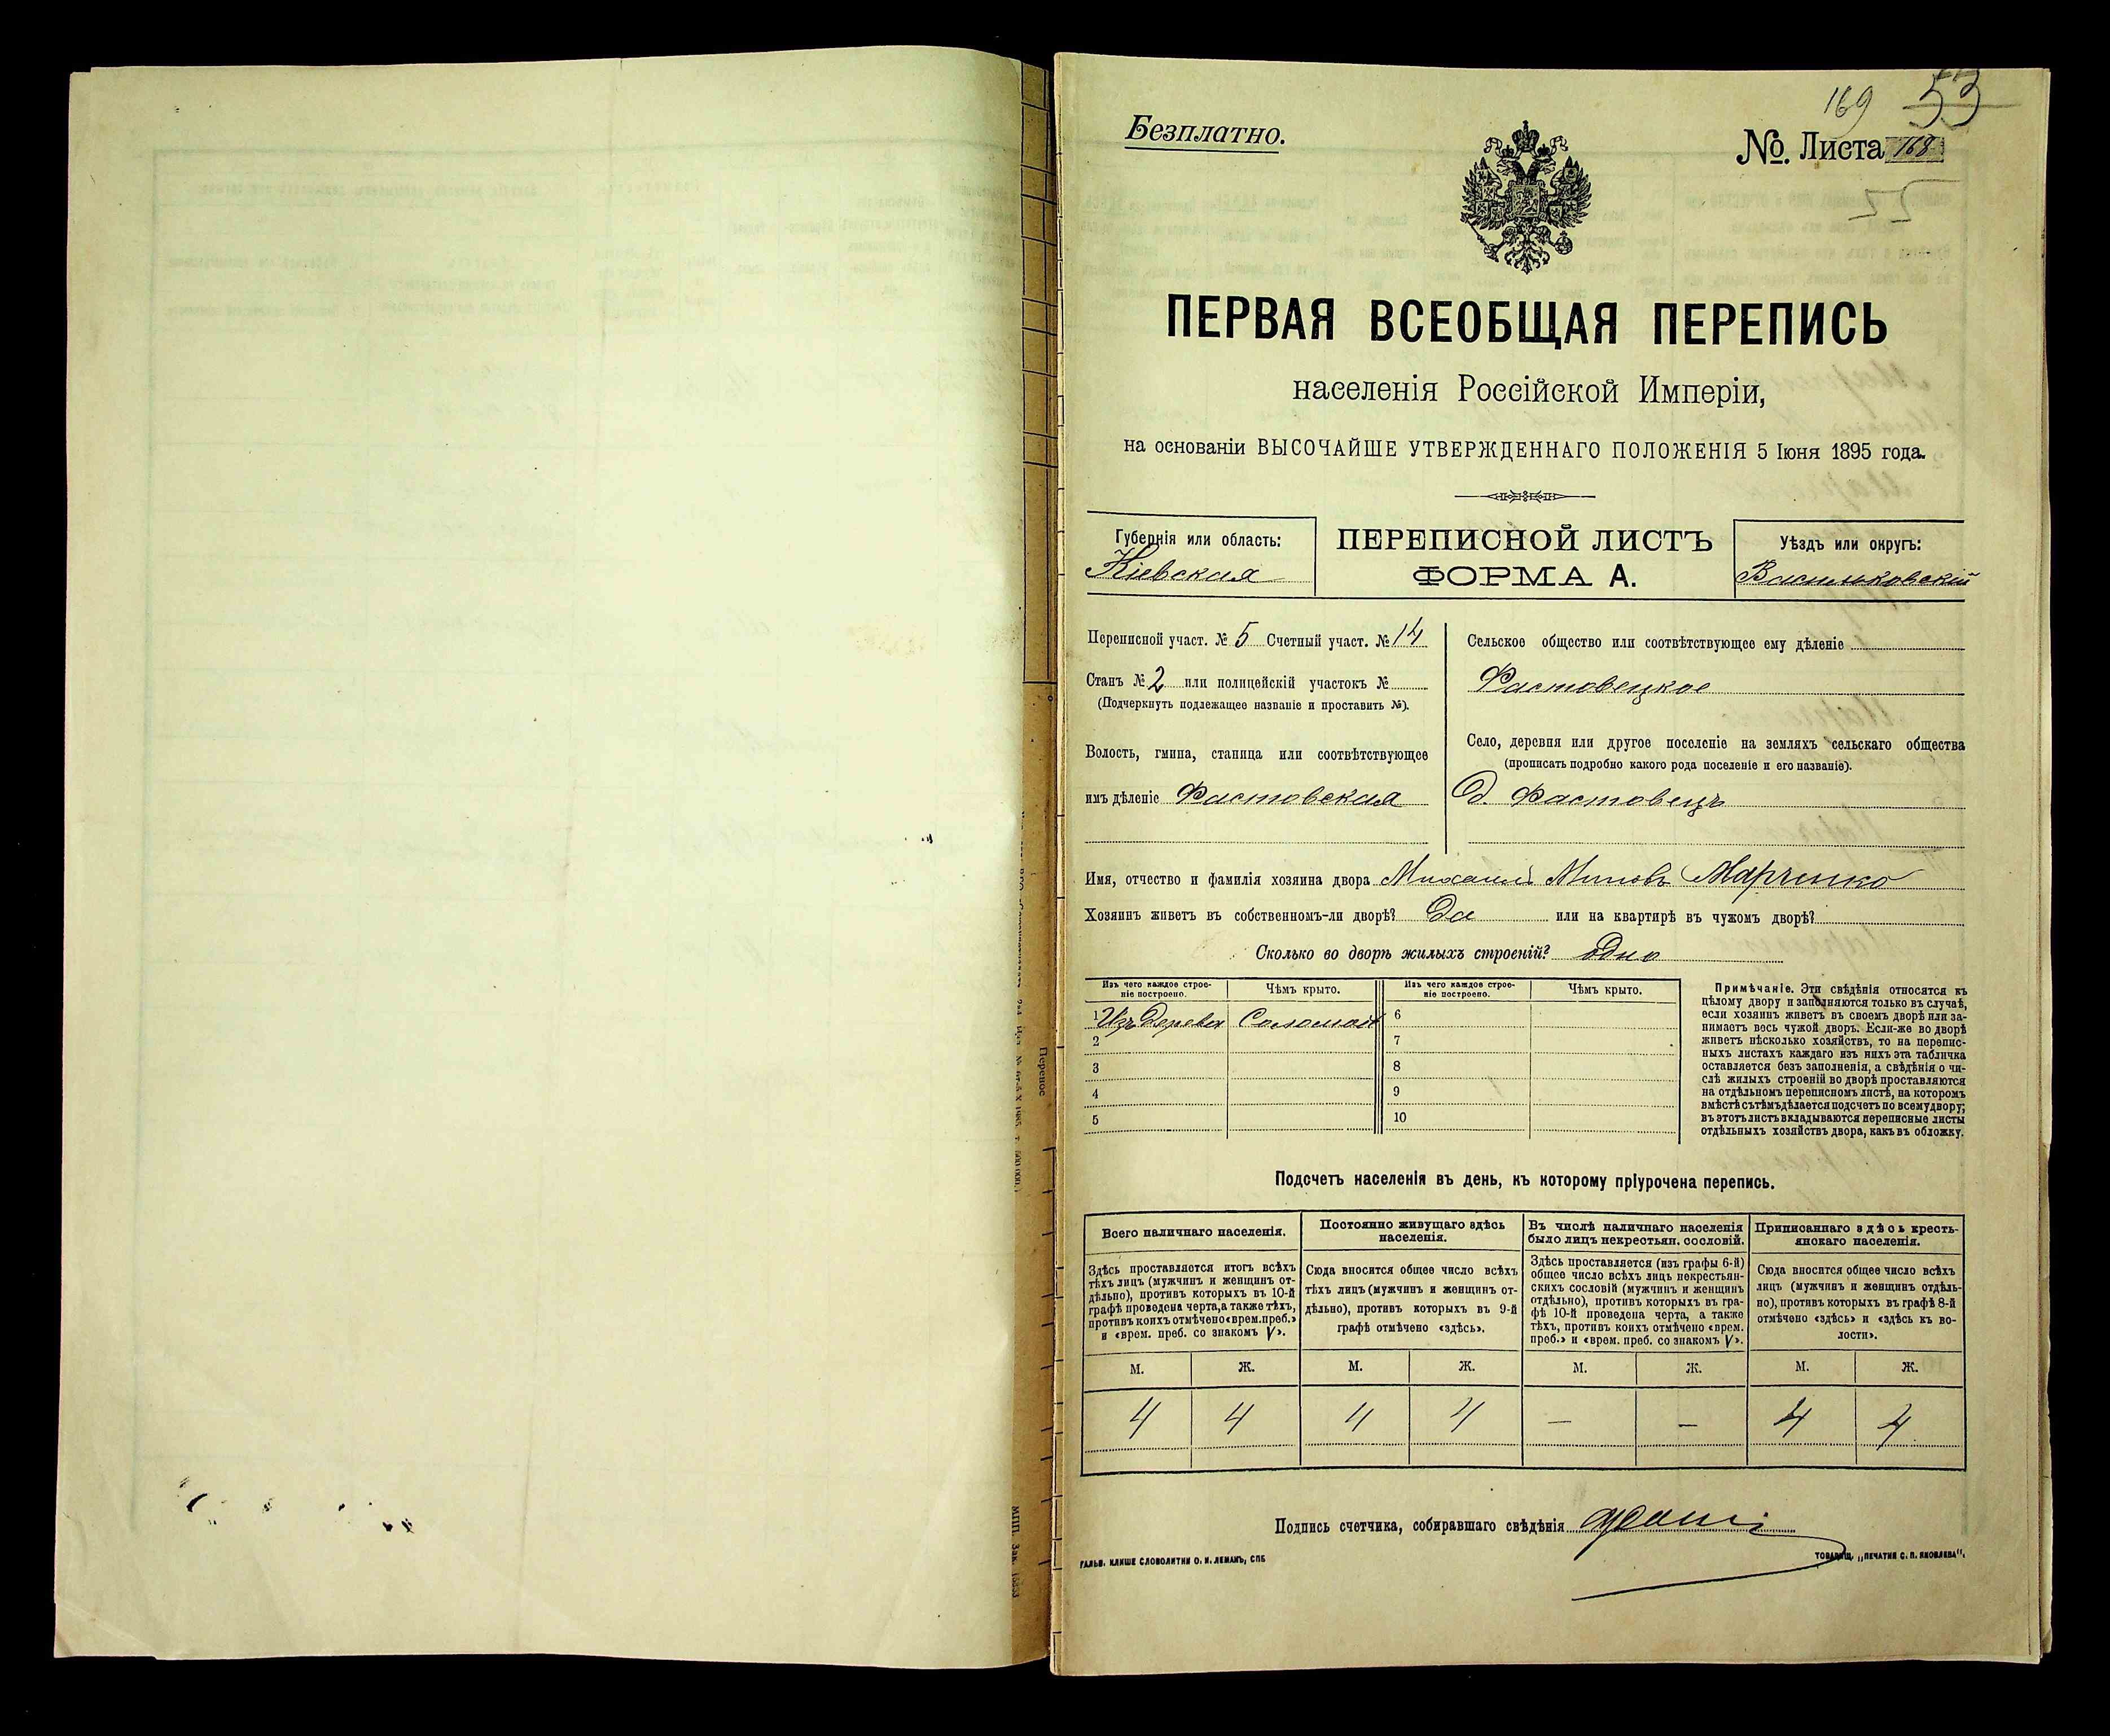 169 53
Безплатно.
№. Листа 168
55
ПЕРВАЯ ВСЕОБЩАЯ ПЕРЕПИСЬ
населенія Россійской Имперіи,
на основаніи ВЫСОЧАЙШЕ УТВЕРЖДЕННАГО ПОЛОЖЕНІЯ 5 Іюня 1895 года.
Губернія или область:
Кіевская
ПЕРЕПИСНОЙ ЛИСТЪ
ФОРМА А.
Уѣздъ или округъ:
Васильковскій
Переписной участ. № 5 Счетный участ. № 14
Станъ № 2 или полицейскій участокъ №
(Подчеркнуть подлежащее названіе и проставить №).
Волость, гмина, станица или соотвѣтствующее
имъ дѣленіе Фастовская
Сельское общество или соотвѣтствующее ему дѣленіе
Фастовецкое
Село, деревня или другое поселеніе на земляхъ сельскаго общества
(прописать подробно какого рода поселеніе и его названіе).
Д. Фастовець
Имя, отчество и фамилія хозяина двора Михаилъ Марченко
Хозяинъ живетъ въ собственномъ-ли дворѣ? Да или на квартирѣ въ чужомъ дворѣ?
Сколько во дворѣ жилыхъ строеній? Одно
Изъ чего каждое строе-
ніе построено.
Чѣмъ крыто.
Изъ чего каждое строе-
ніе построено.
Чѣмъ крыто.
1 Изъ Дерева Соломой 6
2 7
3 8
4 9
5 10
Примѣчаніе. Эти свѣдѣнія относятся къ
цѣлому двору и заполняются только въ случаѣ,
если хозяинъ живетъ въ своемъ дворѣ или за-
нимаетъ весь чужой дворъ. Если-же во дворѣ
живетъ нѣсколько хозяйствъ, то на перепис-
ныхъ листахъ каждаго изъ нихъ эта табличка
оставляется безъ заполненія, а свѣдѣнія о чи-
слѣ жилыхъ строеній во дворѣ проставляются
на отдѣльномъ переписномъ листѣ, на которомъ
вмѣстѣ съ тѣмъ дѣлается подсчетъ по всему двору;
въ этотъ листъ вкладываются переписные листы
отдѣльныхъ хозяйствъ двора, какъ въ обложку.
Подсчетъ населенія въ день, къ которому пріурочена перепись.
Всего наличнаго населенія.
Здѣсь проставляется итогъ всѣхъ
тѣхъ лицъ (мужчинъ и женщинъ от-
дѣльно), противъ которыхъ въ 10-й
графѣ проведена черта, а также тѣхъ,
противъ коихъ отмѣчено «врем. преб.»
и «врем. преб. со знакомъ V».
Постоянно живущаго здѣсь
населенія.
Сюда вносится общее число всѣхъ
тѣхъ лицъ (мужчинъ и женщинъ от-
дѣльно), противъ которыхъ въ 9-й
графѣ отмѣчено «здѣсь».
Въ числѣ наличнаго населенія
было лицъ некрестьян. сословій.
Здѣсь проставляется (изъ графы 6-й)
общее число всѣхъ лицъ некрестьян-
скихъ сословій (мужчинъ и женщинъ
отдѣльно), противъ которыхъ въ гра-
фѣ 10-й проведена черта, а также
тѣхъ, противъ коихъ отмѣчено «врем.
преб.» и «врем. преб. со знакомъ V».
Приписаннаго здѣсь кресть-
янскаго населенія.
Сюда вносится общее число всѣхъ
лицъ (мужчинъ и женщинъ отдѣль-
но), противъ которыхъ въ графѣ 8-й
отмѣчено «здѣсь» и «здѣсь къ во-
лости».
М. Ж. М. Ж. М. Ж. М. Ж.
4 4 4 4 — — 4 4
Подпись счетчика, собиравшаго свѣдѣнія
ГАЛЬВ. КЛИШЕ СЛОВОЛИТНИ О. И. ЛЕМАНЪ, СПБ
ТОВАРИЩ. „ПЕЧАТНЯ С. П. ЯКОВЛЕВА".
Переносъ